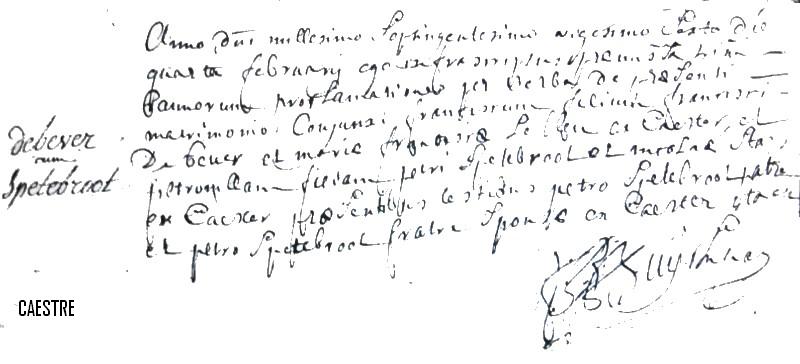 Anno dni millesimo septingentesimo vigesimo sexto die
quarta february ego infrascriptus praemissa trina
bannorum proclamatione per verba de praesenti
matrimonio conjunxi franciscum filium francisci
De bever et mariae francoise le en Caester, et
debever
cum
Spetebroot
petronillam filiam petri Spetebroot et nicolae
ex Caester praesentibus testibus petro Spetebroot patre
et petro Spetebroot fratre Sponsae ex Caester
CAESTRE